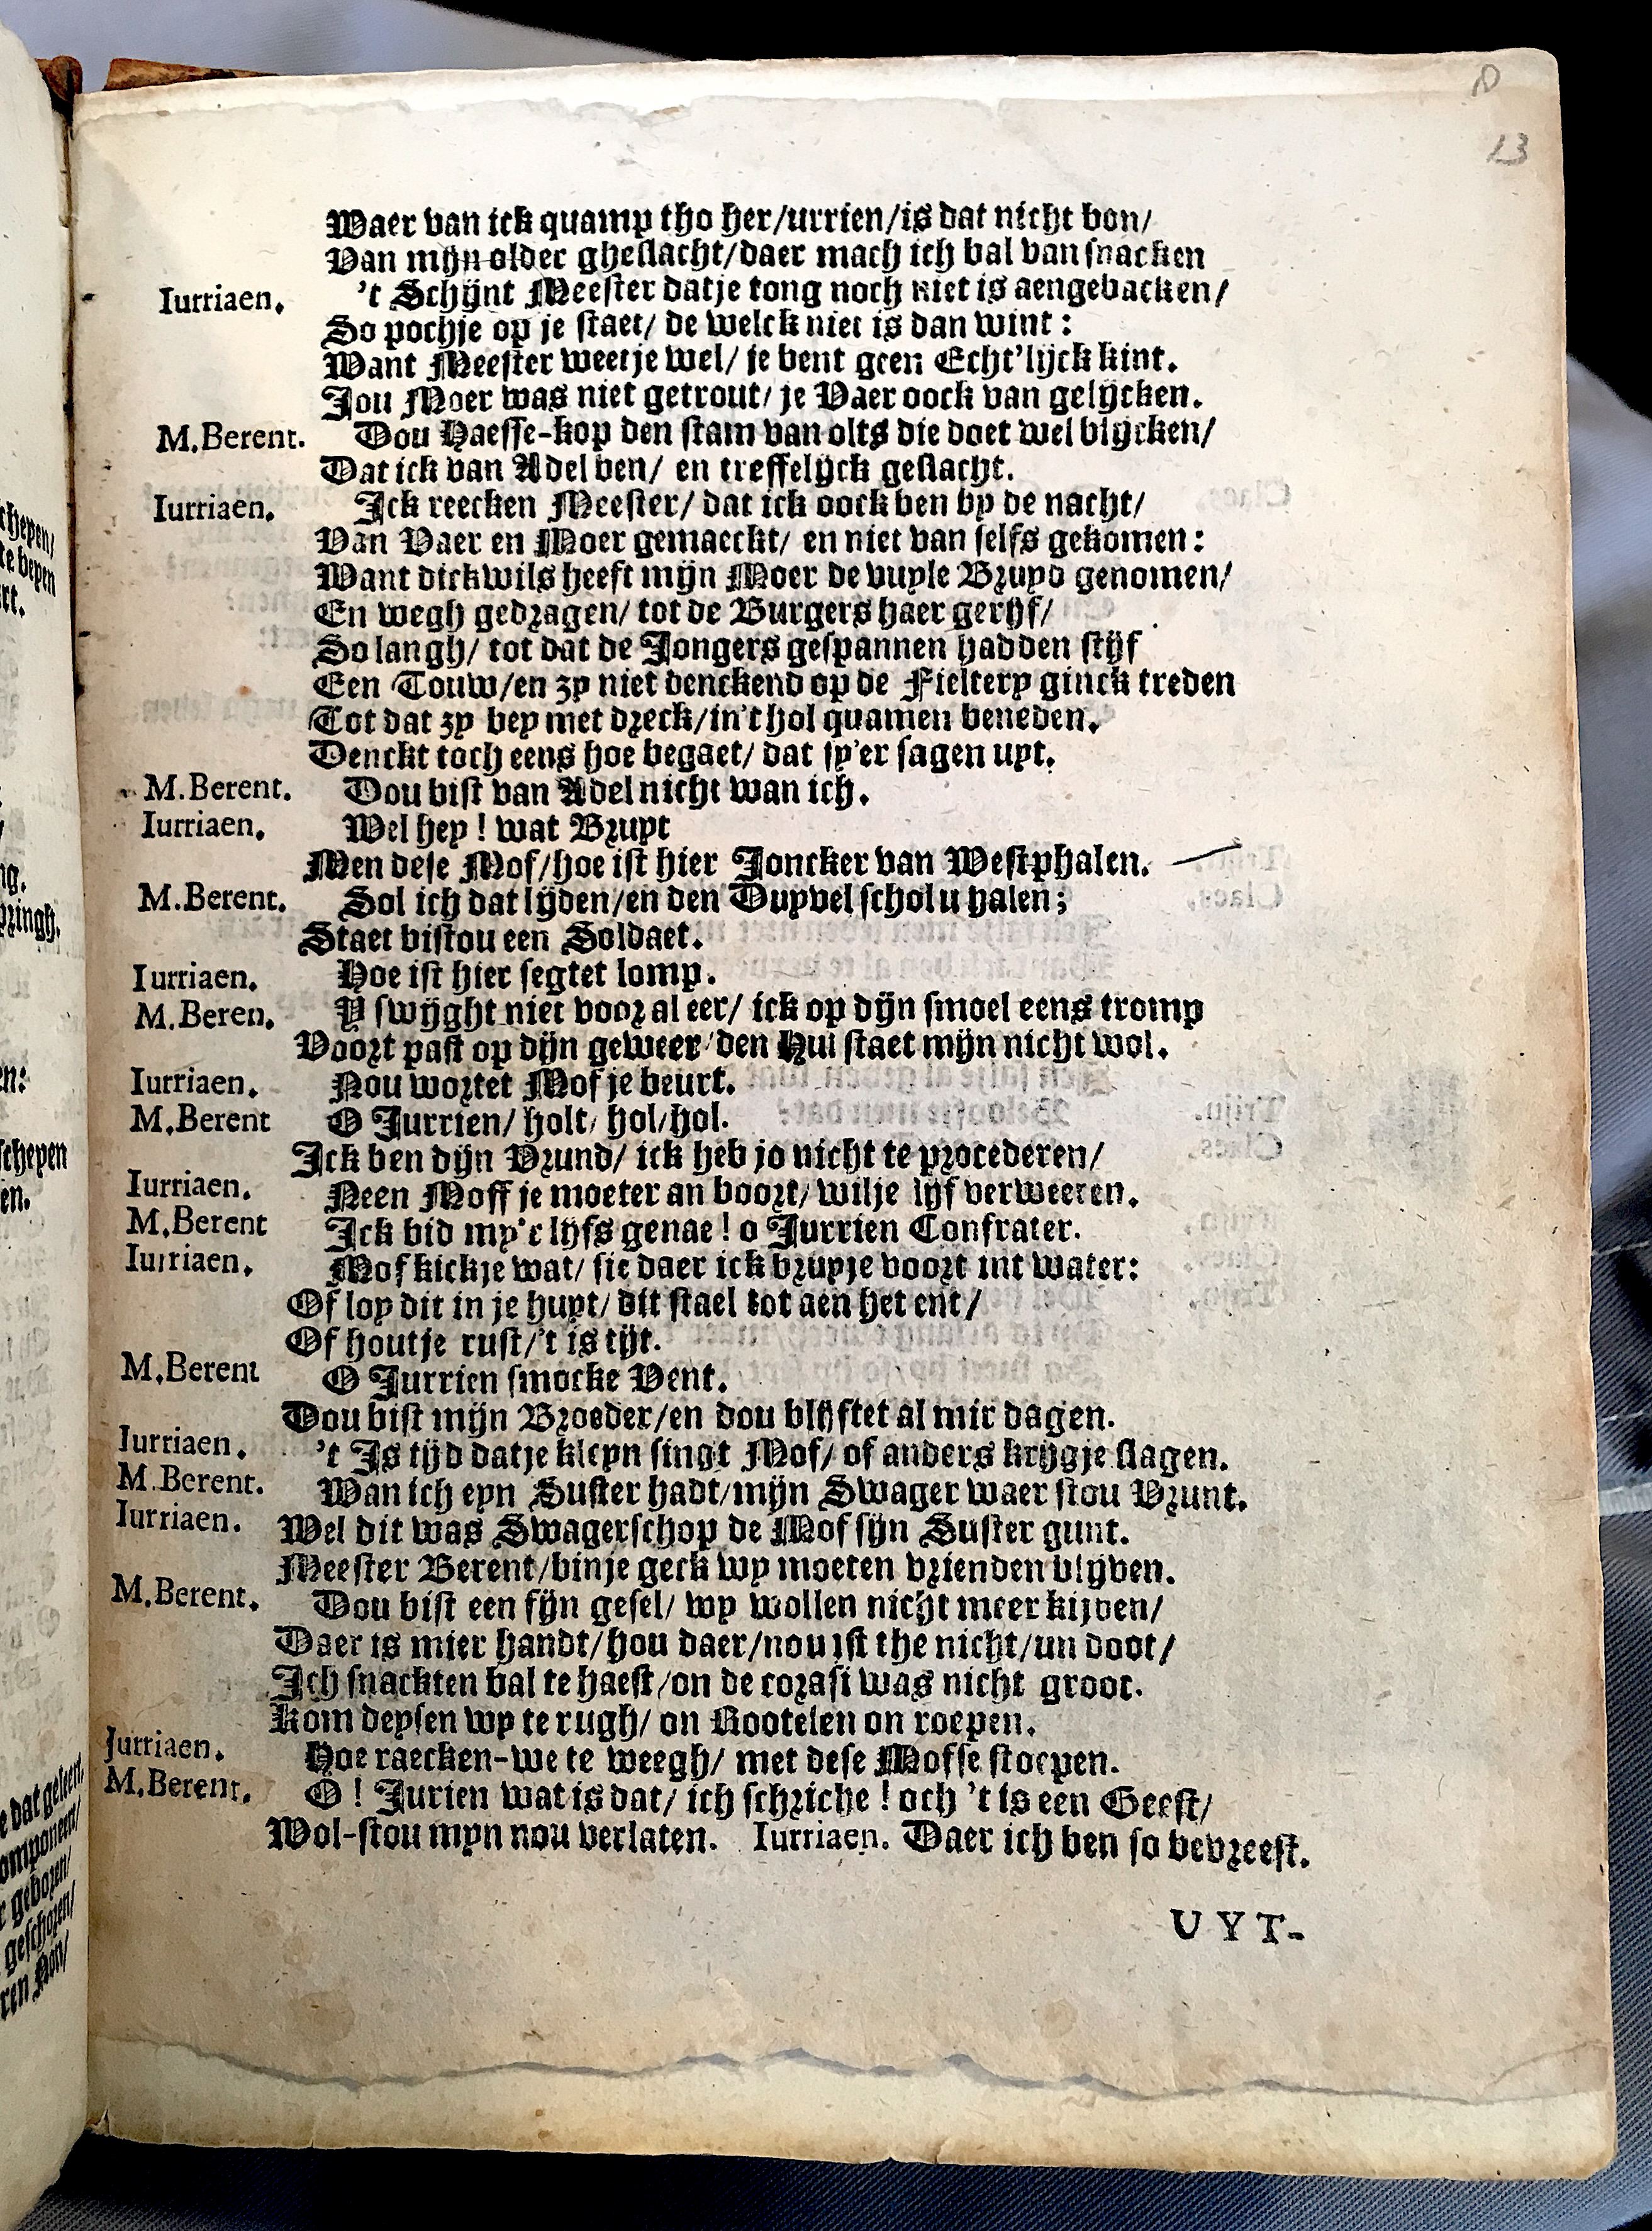 13
Waer van ick quamp tho her/urrien/is dat nicht bon/
Van mijn older gheslacht/daer mach ich bal van snacken
Iurriaen. 't Schijnt Meester datje tong noch niet is aengebacken/
So pochje op je staet/ de welck niet is dan wint:
Want Meester weetje wel/ je bent geen Echt'lijck kint.
Jou Moer was niet getrout/ je Vaer oock van gelijcken.
M.Berent. Dou Haesse-kop den stam van olts die doet wel blijcken/
Dat ick van Adel ben/ en treffelijck geslacht.
Iurriaen. Ick reecken Meester/ dat ick oock ben by de nacht/
Van Vaer en Moer gemaeckt/ en niet van selfs gekomen:
Want dickwils heeft mijn Moer de vuyle Bruyd genomen/
En wegh gedragen/ tot de Burgers haer gerijf/
So langh/ tot dat de Jongers gespannen hadden stijf
Een Touw/en zy niet denckend op de Fieltery ginck treden
Tot dat zy bey met dreck/in't hol quamen beneden.
Denckt toch eens hoe begaet/ dat sy'er sagen uyt.
M.Berent. Dou bist van Adel nicht wan ich.
Iurriaen. Wel hey! wat Bruyt
Men dese Mof/hoe ist hier Joncker van Westphalen.
M.Berent. Sol ich dat lijden/en den Duyvel schol u halen;
Staet bistou een Soldaet.
Iurriaen. Hoe ist hier segtet lomp.
M.Beren. Y swijght niet voor al eer/ ick op dijn smoel eens tromp
Voort past op dijn geweer/den Hui staet mijn nicht wol.
Iurriaen. Nou wortet Mof je beurt.
M.Berent O Jurrien/ holt/ hol/hol.
Ick ben dijn Vrund/ ick heb jo nicht te procederen/
Iurriaen. Neen Moff je moeter an boort/ wilje lijf verweeren.
M.Berent Ick bid my't lijfs genae! o Jurrien Confrater.
Iurriaen. Mof kickje wat/ sie daer ick bruyje voort int water:
Of loy dit in je huyt/ dit stael tot aen het ent/
Of houtje rust/'t is tijt.
M.Berent O Jurrien smocke Vent.
Dou bist mijn Broeder/en dou blijftet al mir dagen.
Iurriaen. 't Is tijd datje kleyn singt Mof/ of anders krijgje slagen.
M.Berent. Wan ich eyn Suster hadt/mijn Swager waer stou Vrunt.
Iurriaen. Wel dit was Swagerschop de Mof sijn Suster gunt.
Meester Berent/binje geck wy moeten vrienden blijven.
M.Berent. Dou bist een fijn gesel/ wy wollen nicht meer kijven/
Daer is mier handt/hou daer/nou ist the nicht/un doot/
Ich snackten bal te haest/on de corasi was nicht groot.
Kom deysen wy te rugh/ on Rootelen on roepen.
Iurriaen. Hoe raecken-we te weegh/ met dese Mofse stoepen.
M.Berent. O! Jurien wat is dat/ ich schriche! och 't is een Geest/
Wol-stou myn nou verlaten. Iurriaen. Daer ich ben so bevreest.
UYT-